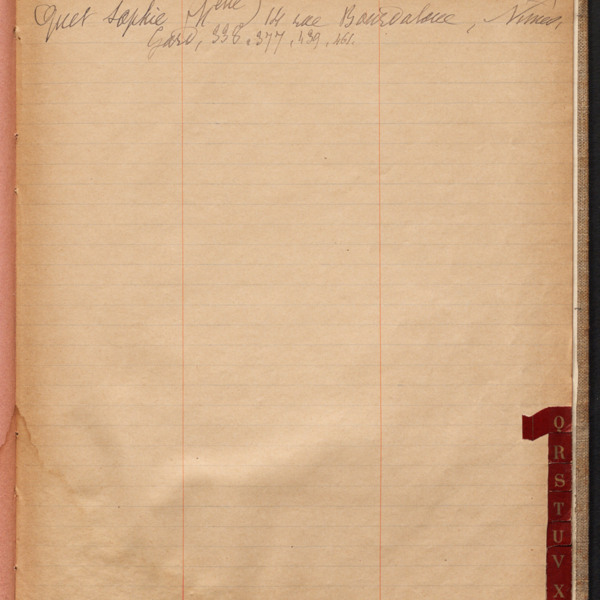 Quet Sophie (Melle) 14 rue Bourdaloue, Nîmes,
Gard, 338, 377, 439, 461.
Q
R
S
T
U
V
X